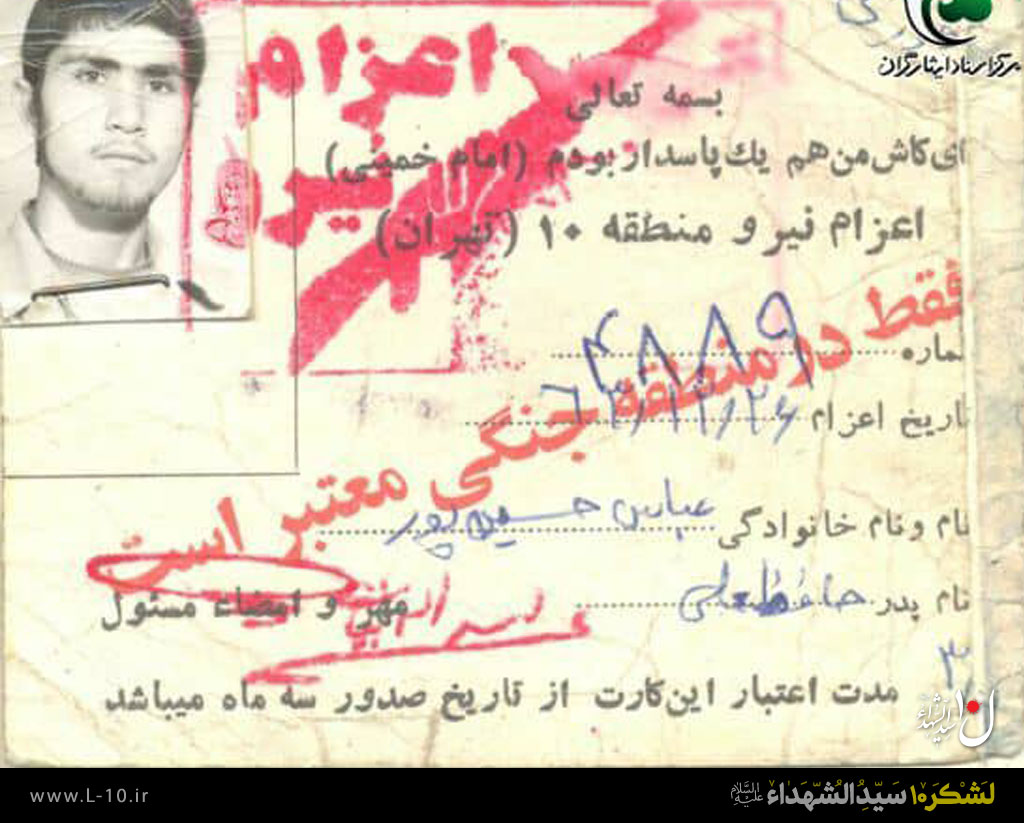 مرکز اسناد ایثارگران
اعزام
نیرو
بسمه تعالی
ای کاش من هم یك پاسدار بودم (امام خمینی)
اعزام نیرو منطقه ۱۰ (تهران)
شماره ۴۸۸۹
فقط در منطقه جنگی معتبر است
تاریخ اعزام
نام و نام خانوادگی عباس حسین پور
نام پدر
مهر و امضاء مسئول
۳
مدت اعتبار این کارت از تاریخ صدور سه ماه میباشد
ل۱۰ سیدالشهداء
www.L-10.ir
لَشْکَر۱۰ سَیِّدُالشُّهَداءِ علیه السلام